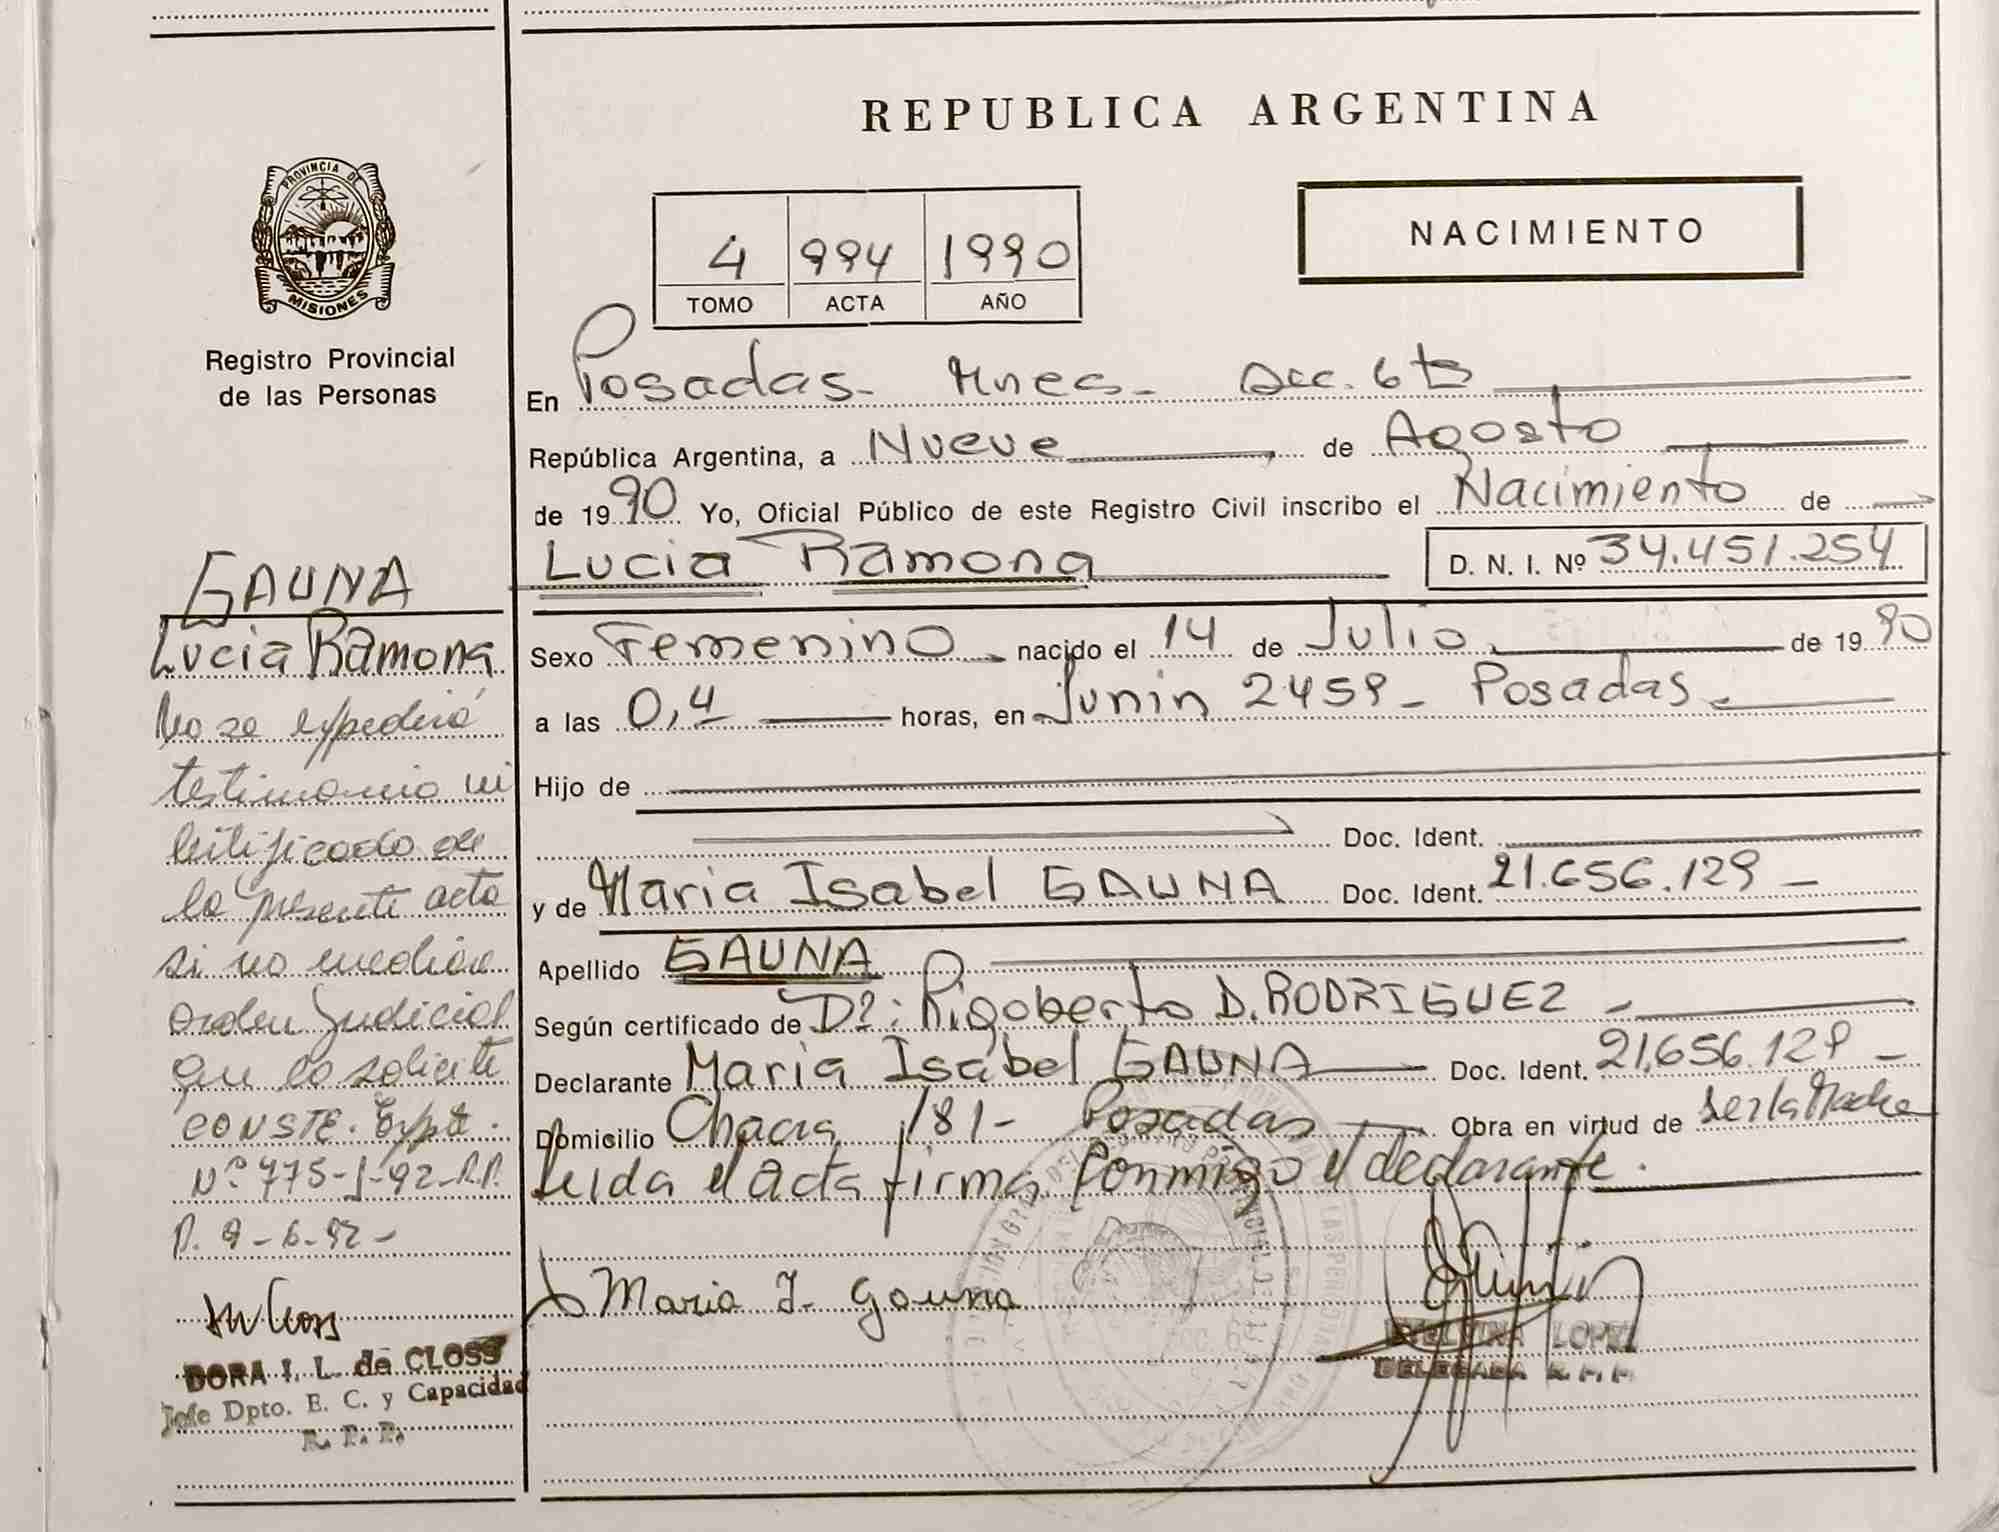 REPUBLICA ARGENTINA
PROVINCIA DE
MISIONES
Registro Provincial
de las Personas
NACIMIENTO
4 994 1990
TOMO ACTA AÑO
En Posadas - Mnes - Secc. 6ta
República Argentina, a Nueve de Agosto
de 1990 Yo, Oficial Público de este Registro Civil inscribo el Nacimiento de
Lucia Ramona D. N. I. Nº 34.451.254
Sexo Femenino nacido el 14 de Julio de 1990
a las 0,4 horas, en Junin 2459 - Posadas -
Hijo de
Doc. Ident.
y de Maria Isabel GAUNA Doc. Ident. 21.656.129 -
Apellido GAUNA
Según certificado de Dº: Rigoberto D. RODRIGUEZ -
Declarante Maria Isabel GAUNA Doc. Ident. 21.656.129 -
Domicilio Chacra 181 - Posadas Obra en virtud de ser la Madre
Leida el acta firma conmigo el declarante.
Maria I. Gauna
LOPEZ
DELEGADA R. P. P.
GAUNA
Lucia Ramona
No se expedirá
testimonio ni
certificado de
la presente acta
si no mediare
orden Judicial
que lo solicite
CONSTE. Expte.
Nº 775-J-92-R.P.
P. 9-6-92-
DORA I. L. de CLOSS
Jefe Dpto. E. C. y Capacidad
R. P. P.